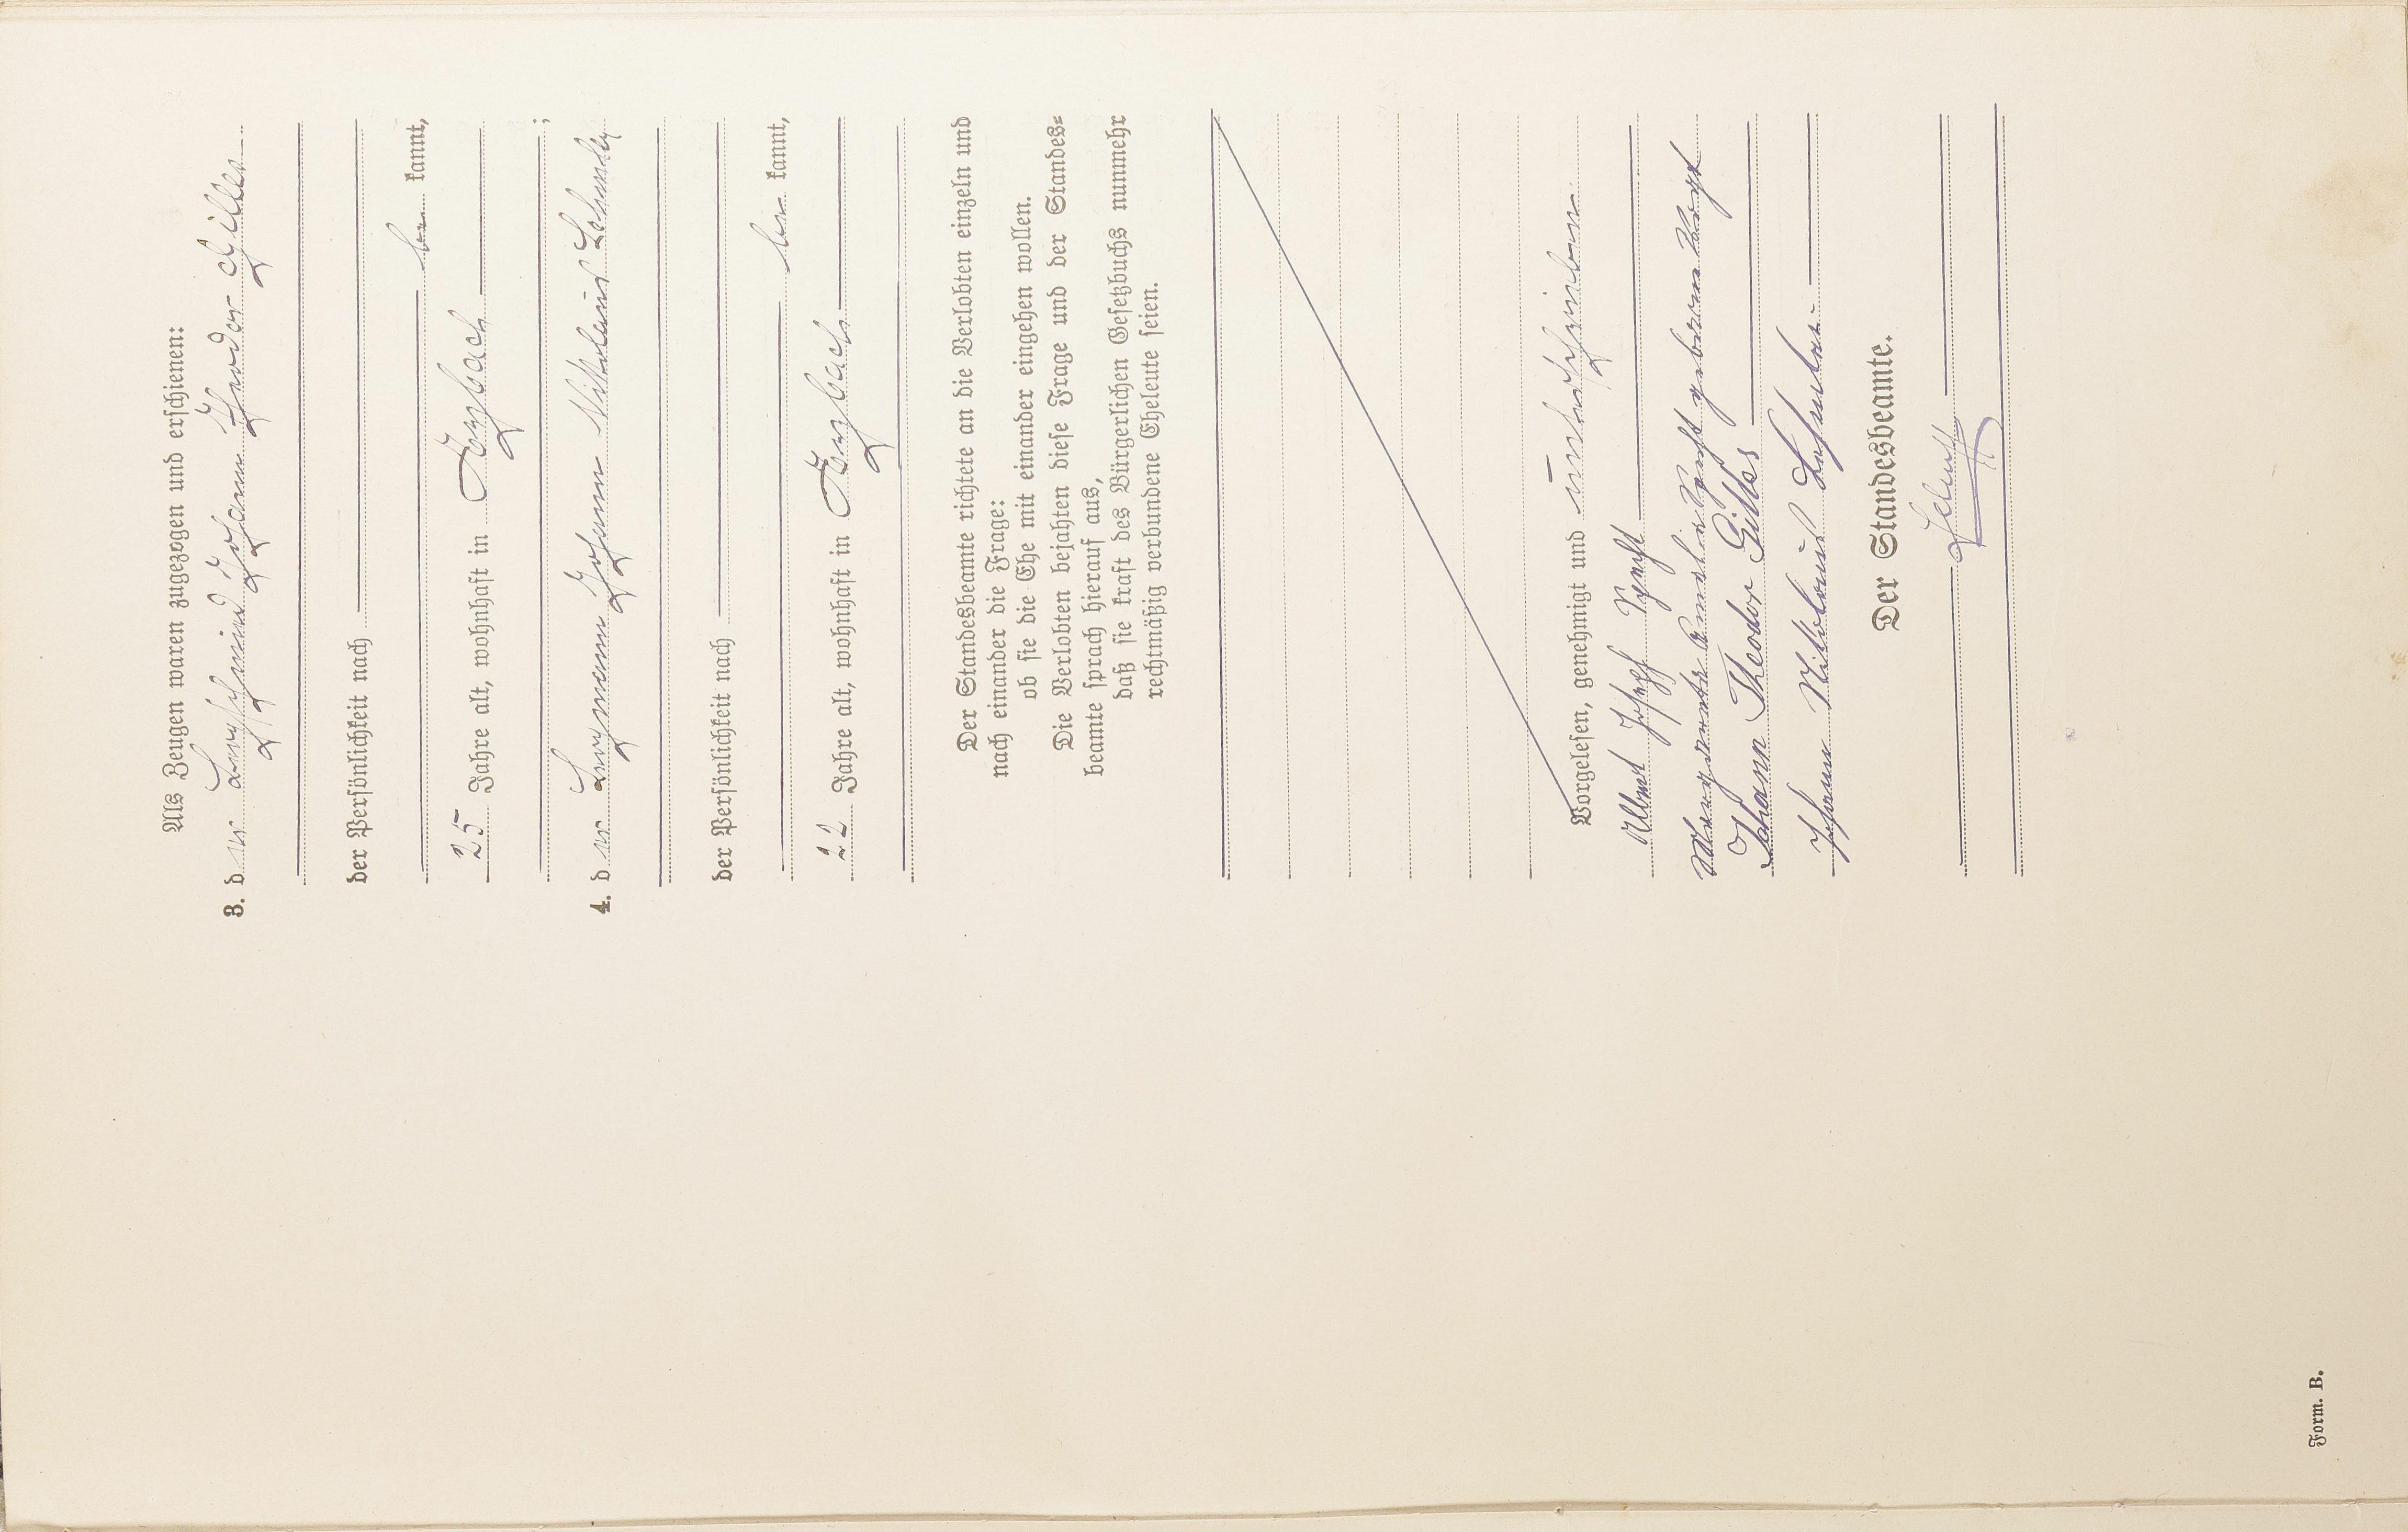 Als Zeugen waren zugezogen und erschienen:
3. der Bergschmied Johann Theodor Gilles
der Persönlichkeit nach
be kannt,
25 Jahre alt, wohnhaft in Torsbach
;
4. der Bergmann Johann Nikolaus
der Persönlichkeit nach
be kannt,
22 Jahre alt, wohnhaft in
Der Standesbeamte richtete an die Verlobten einzeln und
nach einander die Frage:
ob sie die Ehe mit einander eingehen wollen.
Die Verlobten bejahten diese Frage und der Standes=
beamte sprach hierauf aus,
daß sie kraft des Bürgerlichen Gesetzbuchs nunmehr
rechtmäßig verbundene Eheleute seien.
Vorgelesen, genehmigt und unterschrieben
Albert Joseph Specht
Margareta Specht geborene Vogt
Johann Theodor Gilles
Johann Nikolaus
Der Standesbeamte.
Form. B.